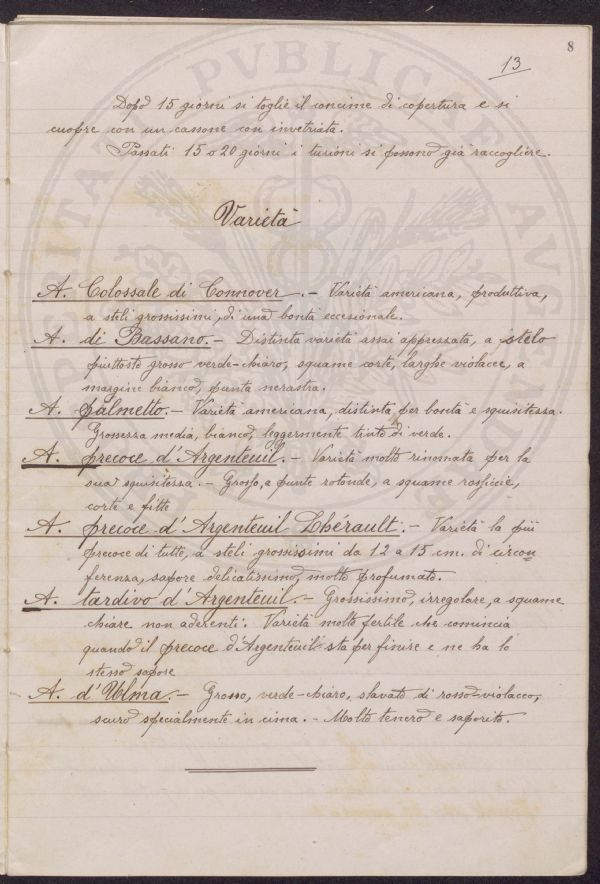 8
13
Dopo 15 giorni si toglie il concime di copertura e si
cuopre con un cassone con invetriata.
Passati 15 o 20 giorni i turioni si possono già raccogliere.
Varietà
A. Colossale di Connover. - Varietà americana, produttiva,
a steli grossissimi, di una bontà eccesionale.
A. di Bassano. - Distinta varietà assai appressata, a stelo
piuttosto grosso verde-chiaro, squame corte, larghe violacee, a
margine bianco, punta nerastra.
A. palmetto. - Varietà americana, distinta per bontà e squisitessa.
Grossessa media, bianco, leggermente tinto di verde.
A. precoce d'Argenteuil. - Varietà molto rinomata per la
sua squisitessa. - Grosso, a punte rotonde, a squame rossiccie,
corte e fitte
A. precoce d'Argenteuil Lhérault. - Varietà la più
precoce di tutte, a steli grossissimi da 12 a 15 cm. di circon=
ferenza, sapore delicatissimo, molto profumato.
A. tardivo d'Argenteuil. - Grossissimo, irregolare, a squame
chiare non aderenti. Varietà molto fertile che comincia
quando il precoce d'Argenteuil sta per finire e ne ha lo
stesso sapore
A. d'Ulma. - Grosso, verde-chiaro, slavato di rosso-violaceo,
scuro specialmente in cima. - Molto tenero e saporito.
PVBLICAE